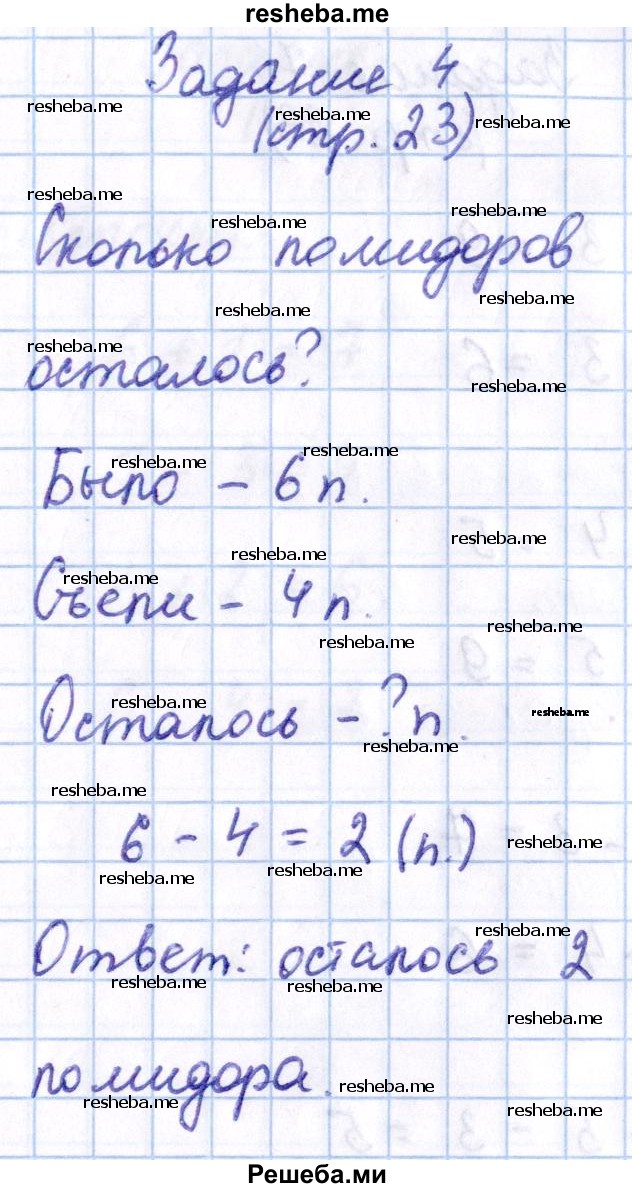 resheba.me
Задание 4
resheba.me resheba.me resheba.me
(стр. 23)
resheba.me resheba.me resheba.me
Сколько помидоров
resheba.me resheba.me
resheba.me
осталось?
resheba.me
resheba.me resheba.me
Было - 6 п.
resheba.me
resheba.me
resheba.me
Съели - 4 п.
resheba.me
resheba.me
resheba.me resheba.me
Осталось - ? п.
resheba.me
resheba.me
6 - 4 = 2 (п.)
resheba.me
resheba.me resheba.me
resheba.me
Ответ: осталось 2
resheba.me resheba.me
resheba.me
помидора.
resheba.me
resheba.me resheba.me
Решеба.ми